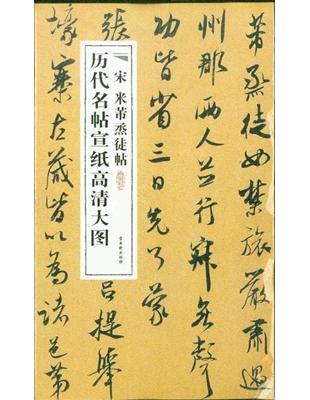 芾烝徒如禁旅嚴肅過
州郡兩人並行寂無聲
功皆省三日先了蒙
張
呂提舉
壕寨左藏皆以為諸邑第
宋 米芾烝徒帖
历代名帖宣纸高清大图